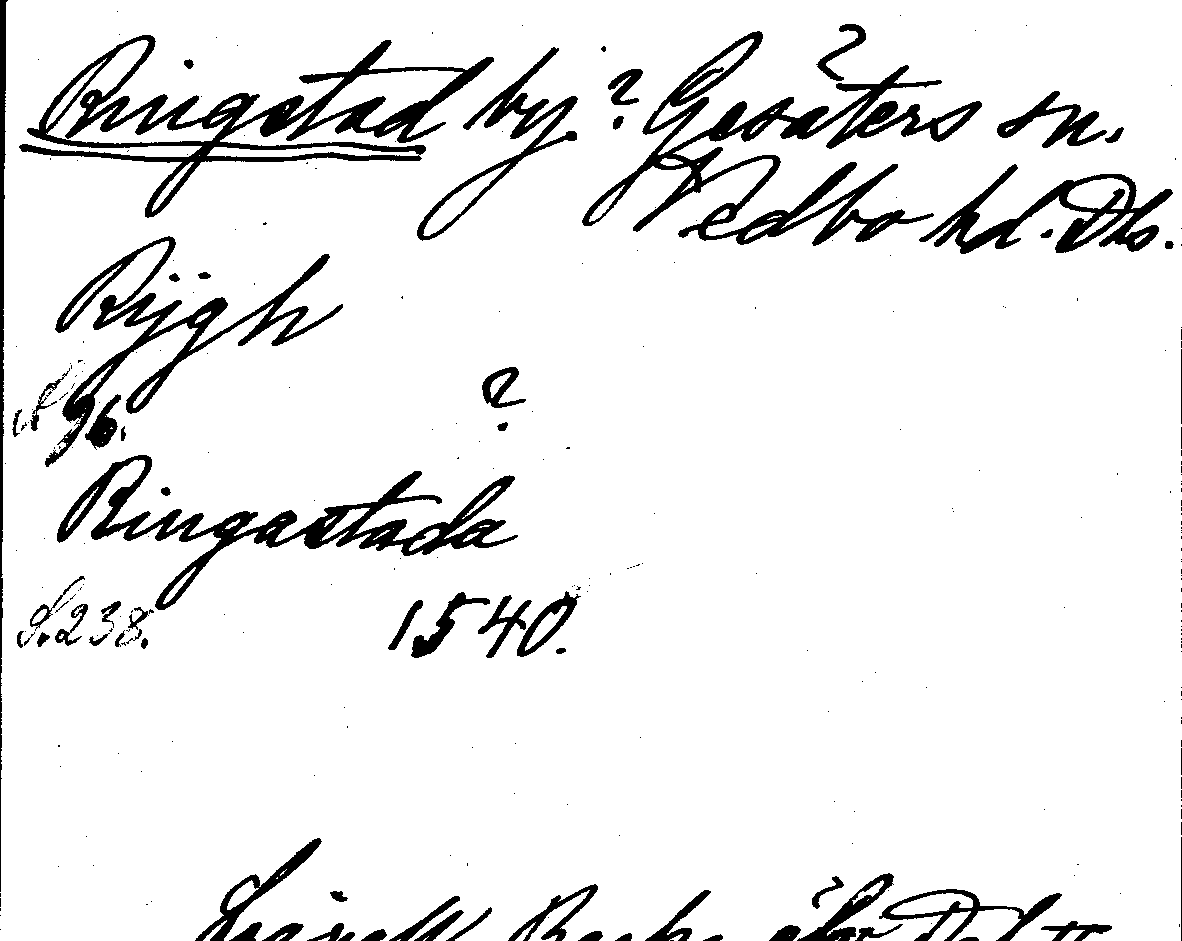 Ringstad by.? Gesäters sn.
Vedbo hd. Dls.
Rijgh
S. 96. ?
Ringastada
S. 238. 1540.